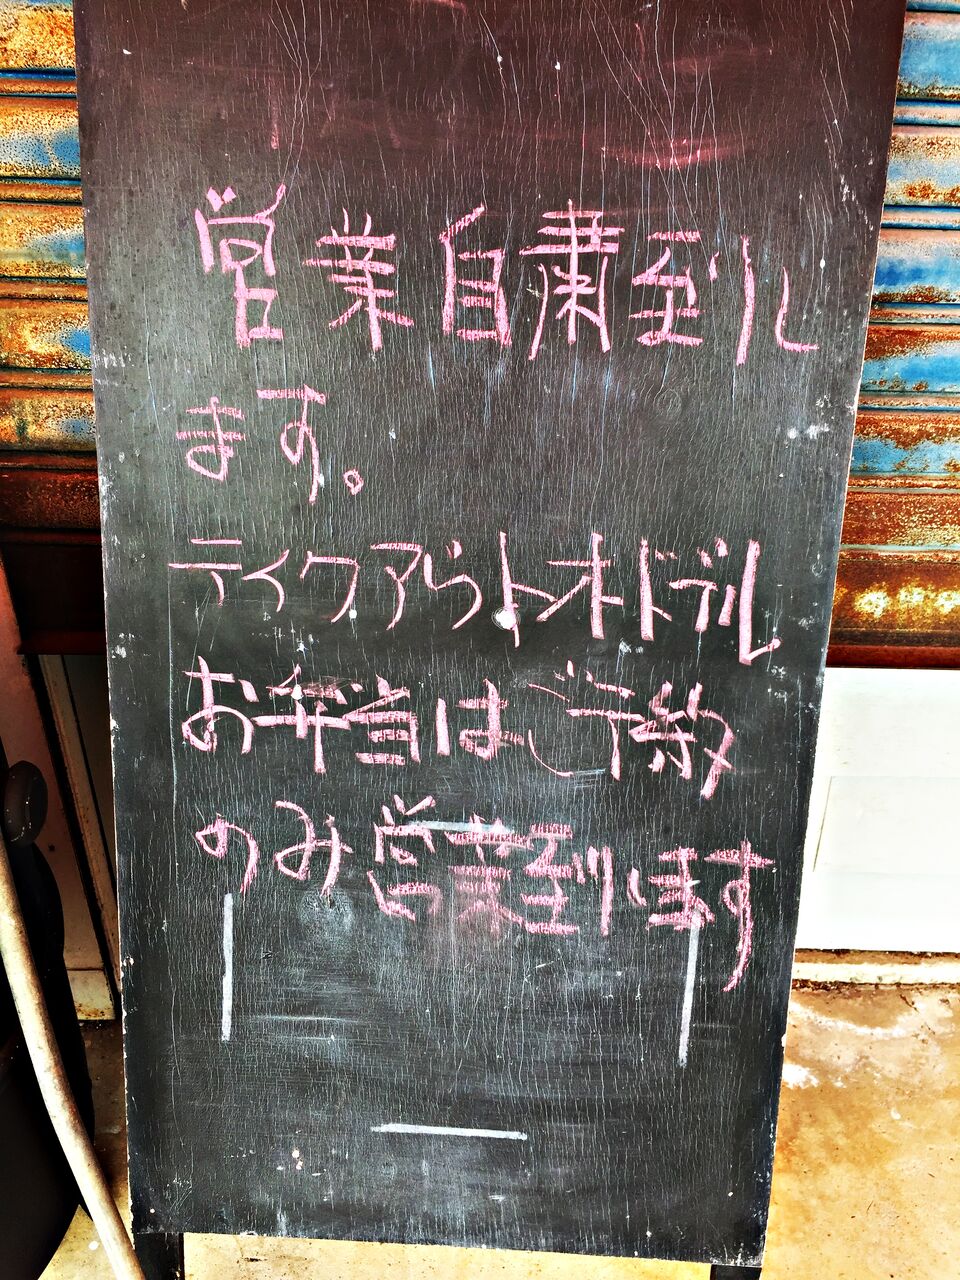 営業自粛到し
ます。
テイクアウトオドブル
お弁当はご予約
のみ営業到します